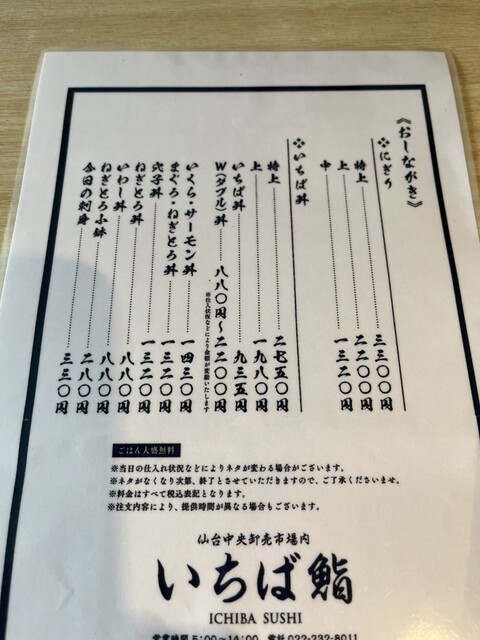 《おしながき》
❖にぎり
特上……三三〇〇円
上……二二〇〇円
中……一三二〇円
❖いちば丼
特上……二七五〇円
上……一九八〇円
いちば丼……九三五円
W(ダブル)丼……八八〇円〜二二〇〇円
※仕入状況などにより金額が変動いたします
いくら・サーモン丼……一四三〇円
まぐろ・ねぎとろ丼……一三二〇円
穴子丼……一三二〇円
ねぎとろ丼……八八〇円
いわし丼……八八〇円
ねぎとろ小鉢……二八〇円
今日の刺身……三三〇円
ごはん大盛無料
※当日の仕入れ状況などによりネタが変わる場合がございます。
※ネタがなくなり次第、終了とさせていただきますので、ご了承くださいませ。
※料金はすべて税込表記となります。
※注文内容により、提供時間が異なる場合もございます。
仙台中央卸売市場内
いちば鮨
ICHIBA SUSHI
営業時間 5:00〜14:00 電話 022-232-8011